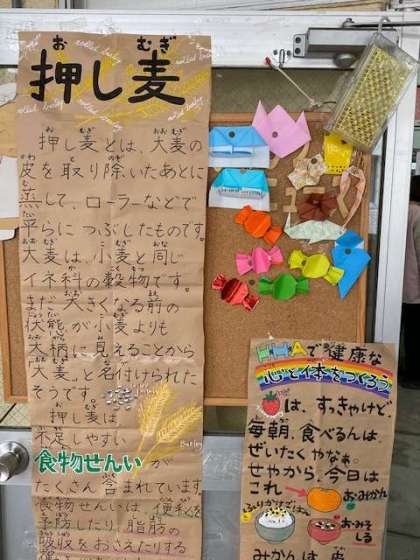 押し麦
おむぎ
rolled barley
押し麦とは、大麦の
皮を取り除いたあとに
蒸して、ローラーなどで
平らにつぶしたものです。
大麦は、小麦と同じ
イネ科の穀物です。
まだ大きくなる前の
状態が小麦よりも
大柄に見えることから
「大麦」と名付けられた
そうです。
押し麦は
不足しやすい
食物せんいが
たくさん含まれています。
食物せんいは、便秘を
予防したり、脂肪の
吸収をおさえたりする
Barley
で健康な
心と体をつくろう
は、すっきゃけど、
毎朝、食べるんは、
ぜいたくやなぁ。
せやから、今日は
これ
おみかん
ふりかけごはん
おみそしる
みかんは